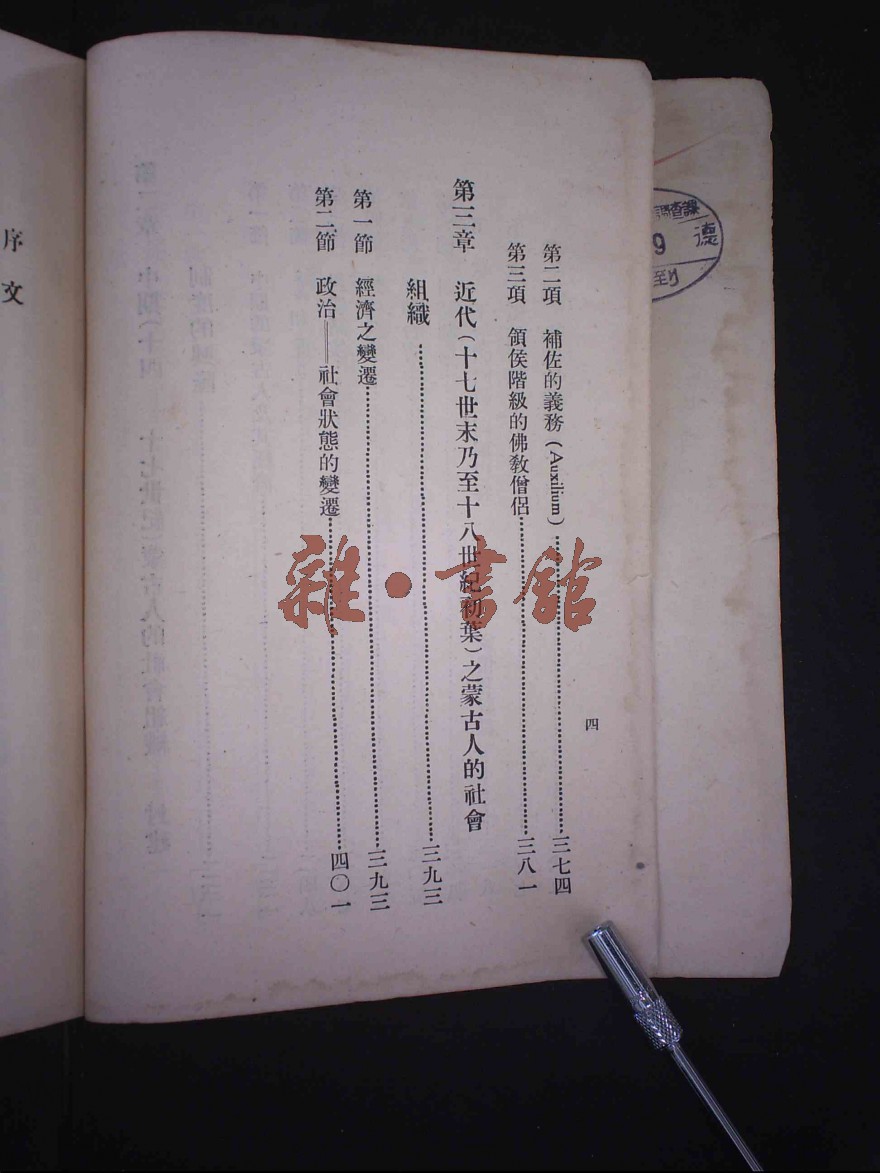 四
第二項 補佐的義務(Auxilium)……三七四
第三項 領侯階級的佛教僧侶……三八一
第三章 近代(十七世末乃至十八世紀初葉)之蒙古人的社會
組織……三九三
第一節 經濟之變遷……三九三
第二節 政治——社會狀態的變遷……四〇一
序文
雜·書館
查課
9 德
到